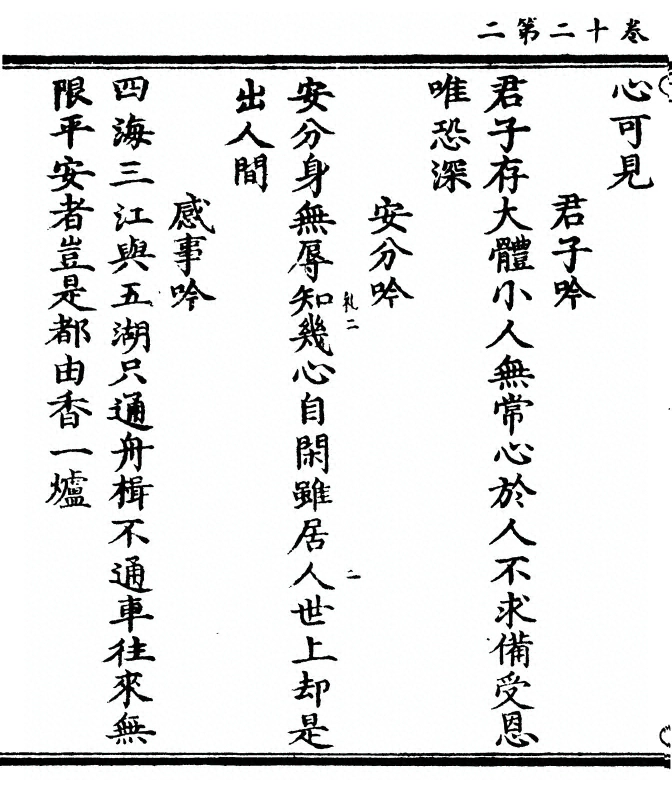 卷十二第二
心可見
君子吟
君子存大體小人無常心於人不求備受恩
唯恐深
安分吟
安分身無辱知幾心自閑雖居人世上却是
出人間
感事吟
四海三江與五湖只通舟楫不通車往來無
限平安者豈是都由香一爐